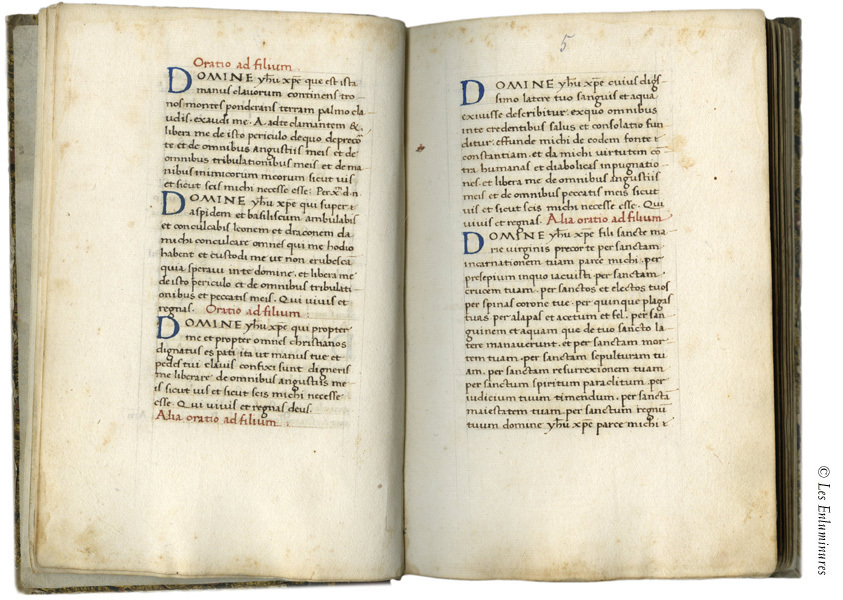 Oratio ad filium
DOMINE yhu xpe que est ista
manus clavorum continens tro
nos montes ponderans terram palmo cla
udis. exaudi me. A. ad te clamantem &
libera me de isto periculo de quo depreco
te et de omnibus angustiis meis et de
omnibus tribulationibus meis et de ma
nibus inimicorum meorum sicut vis
et sicut scis michi necesse esse. Per xm d. n.
DOMINE yhu xpe qui super
aspidem et basiliscum ambulabis
et conculcabis leonem et draconem da
michi conculcare omnes qui me hodio
habent et custodi me ut non erubesca
quia speravi in te domine. et libera me
de isto periculo et de omnibus tribulati
onibus et peccatis meis. Qui vivis et
regnas. Oratio ad filium.
DOMINE yhu xpe qui propter
me et propter omnes christianos
dignatus es pati ita ut manus tue et
pedes tui clavis confixi sunt digneris
me liberare de omnibus angustiis me
is sicut vis et sicut scis michi necesse
esse. Qui vivis et regnas deus.
Alia oratio ad filium
5
DOMINE yhu xpe cuius digs
simo latere tuo sanguis et aqua
exivisse describitur. ex quo omnibus
in te credentibus salus et consolatio fun
ditur. effunde michi de eodem fonte
constantiam. et da michi virtutem co
tra humanas et diabolicas inpugnatio
nes. et libera me de omnibus angustiis
meis et de omnibus peccatis meis sicut
vis et sicut scis michi necesse esse. Qui
vivis et regnas. Alia oratio ad filium
DOMINE yhu xpe fili sancte ma
rie virginis precor te per sanctam
incarnationem tuam parce michi. per
presepium in quo iacuisti. per sanctam
crucem tuam. per sanctos et electos tuos
per spinas corone tue. per quinque plagas
tuas. per alapas et acetum et fel. per san
guinem et aquam que de tuo sancto la
tere manaverunt. et per sanctam mor
tem tuam. per sanctam sepulturam tu
am. per sanctam resurrexionem tuam
per sanctum spiritum paraclitum. per
iudicium tuum timendum. per sancta
maiestatem tuam. per sanctum regnu
tuum domine yhu xpe parce michi
© Les Enluminures